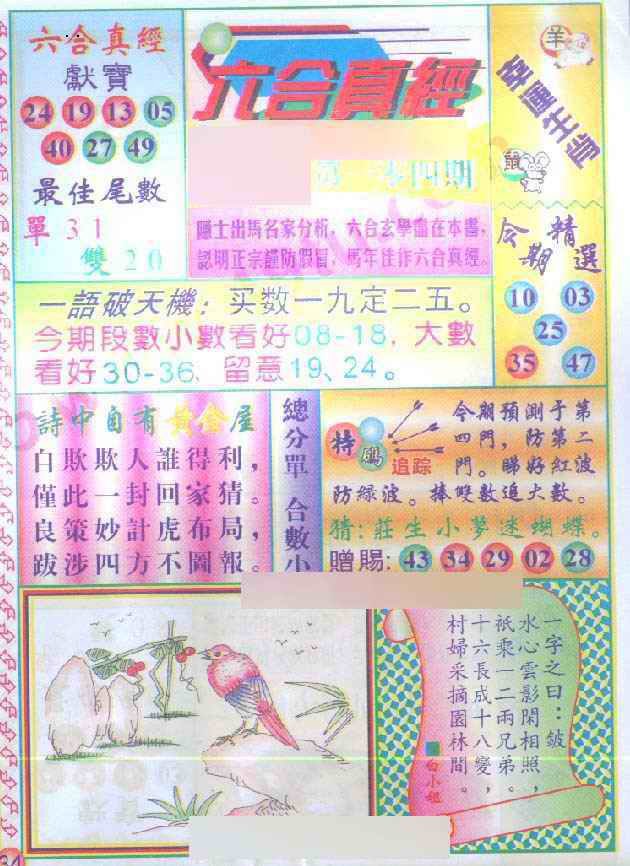 六合真經
獻寶
24 19 13 05
40 27 49
最佳尾數
單 31
雙 20
六合真經
四期
隱士出馬名家分析，六合玄學盡在本書，
認明正宗謹防假冒，馬年佳作六合真經。
羊
幸運生肖
鼠
今期精選
10 03
25
35 47
一語破天機：买数一九定二五。
今期段數小數看好08-18，大數
看好30-36、留意19、24。
詩中自有黃金屋
自欺欺人誰得利，
僅此一封回家猜。
良策妙計虎布局，
跋涉四方不圖報。
總分單 合數小
特碼
追踪
今期預測于第
四門，防第二
門。睇好紅波
防緑波。捧雙數追大數。
猜：莊生小夢迷蝴蝶。
贈賜：43 34 29 02 28
一字之曰：皴
水心雲影閑相照，
祇乘一二兩兄弟。
十六長成十八變，
村婦采摘園林間。
白小姐